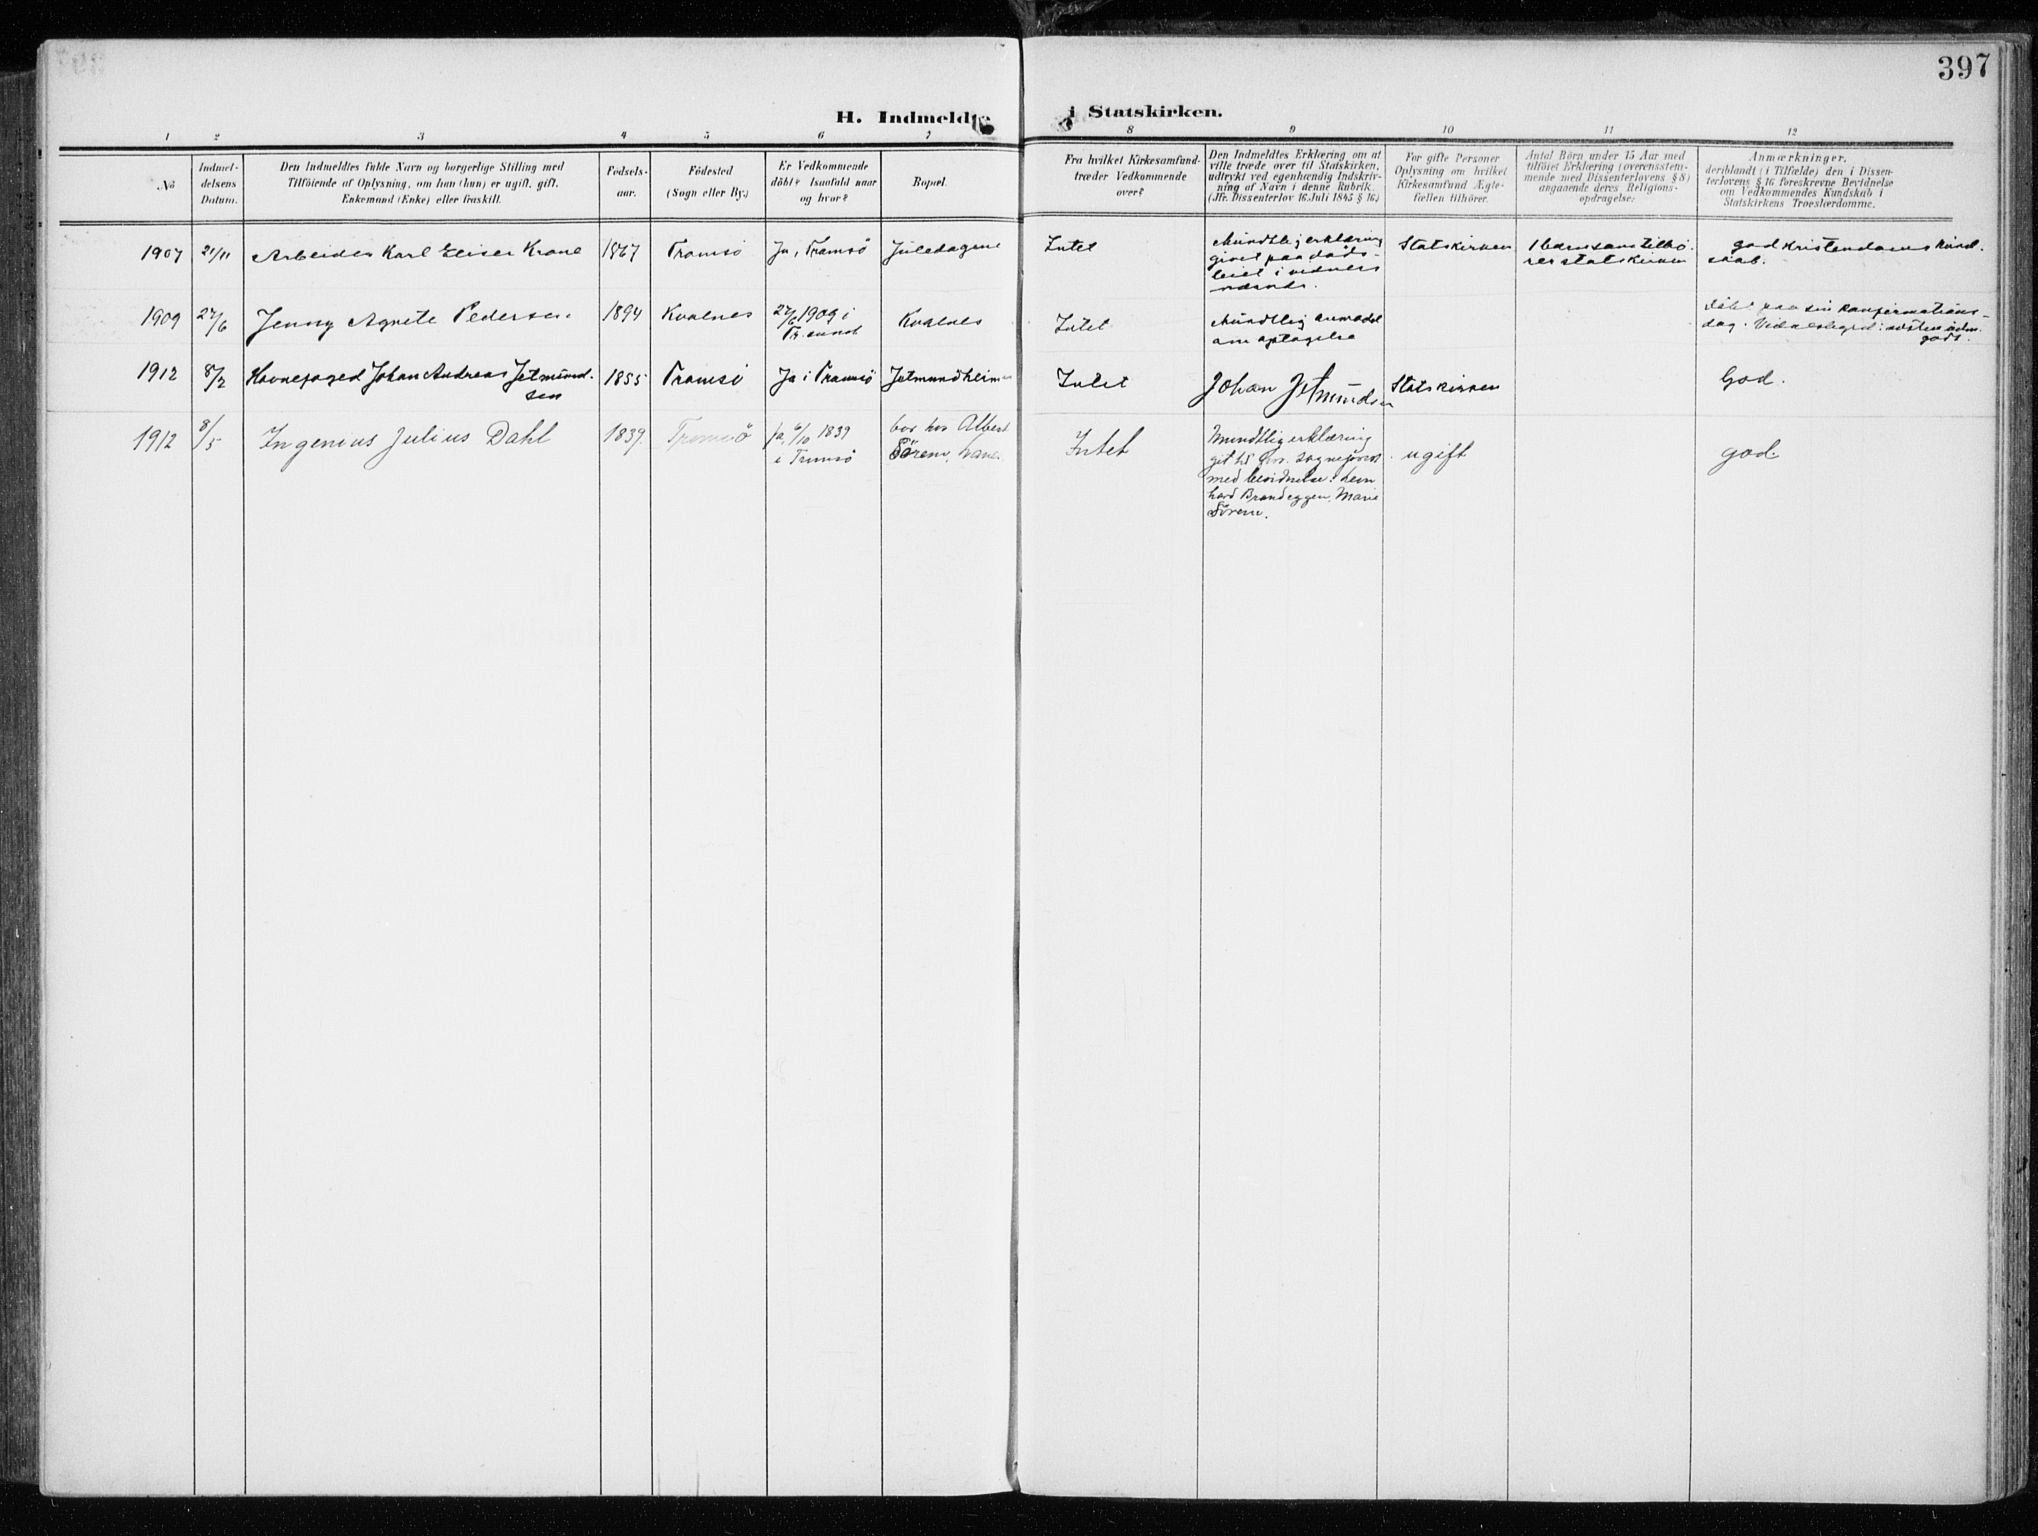 397
H. Indmeldte i Statskirken.
1 2 3 4 5 6 7 8 9 10 11 12
No
Indmel-
delsens
Datum.
Den Indmeldtes fulde Navn og borgerlige Stilling med
Tilföiende af Oplysning, om han (hun) er ugift, gift,
Enkemand (Enke) eller fraskilt.
Födsels-
aar.
Födested
(Sogn eller By.)
Er Vedkommende
döbt? Isaafald naar
og hvor?
Bopæl.
Fra hvilket Kirkesamfund-
træder Vedkommende
over?
Den Indmeldtes Erklæring om at
ville træde over til Statskirken,
udtrykt ved egenhændig Indskriv-
ning af Navn i denne Rubrik.
(Jfr. Dissenterlov 16. Juli 1845 § 16.)
For gifte Personer
Oplysning om hvilket
Kirkesamfund Ægte-
fællen tilhörer.
Antal Börn under 15 Aar med
tilföiet Erklæring (overensstem-
mende med Dissenterlovens § 8)
angaaende deres Religions-
opdragelse:
Anmærkninger,
deriblandt (i Tilfælde) den i Dissen-
terlovens § 16 foreskrevne Bevidnelse
om Vedkommendes Kundskab i
Statskirkens Troeslærdomme.
1907 21/11 Arbeider Karl Eliser Krane 1867 Tromsö Ja, i Tromsö Juledagene Intet
Mundtlig erklæring
givet paa döds-
leiet i vidners
nærvær.
Statskirken
1 barn som tilhö-
rer statskirken
god kristendomskund-
skab.
1909 27/6 Jenny Agnete Pedersen 1894 Kvalnes
27/6 1909 i
Tr.sund
Kvalnes Intet
Mundtlig anmodet
om optagelse
Döbt paa sin konfirmations-
dag.
1912 8/2 Havnefoged Johan Andreas Jetmund-
sen
1855 Tromsö Ja i Tromsö Jetmundheimen Intet Johan Jetmundsen Statskirken God.
1912 8/5 Ingenius Julius Dahl 1839. Tromsö
ja, 6/10 1839
i Tromsö
bor hos Albert
Sörem,
Intet
Mundtlig erklæring
git til sogneprest
med bevidnelse: Leon
hard Brandeggen, Marie
Sörem.
ugift god.